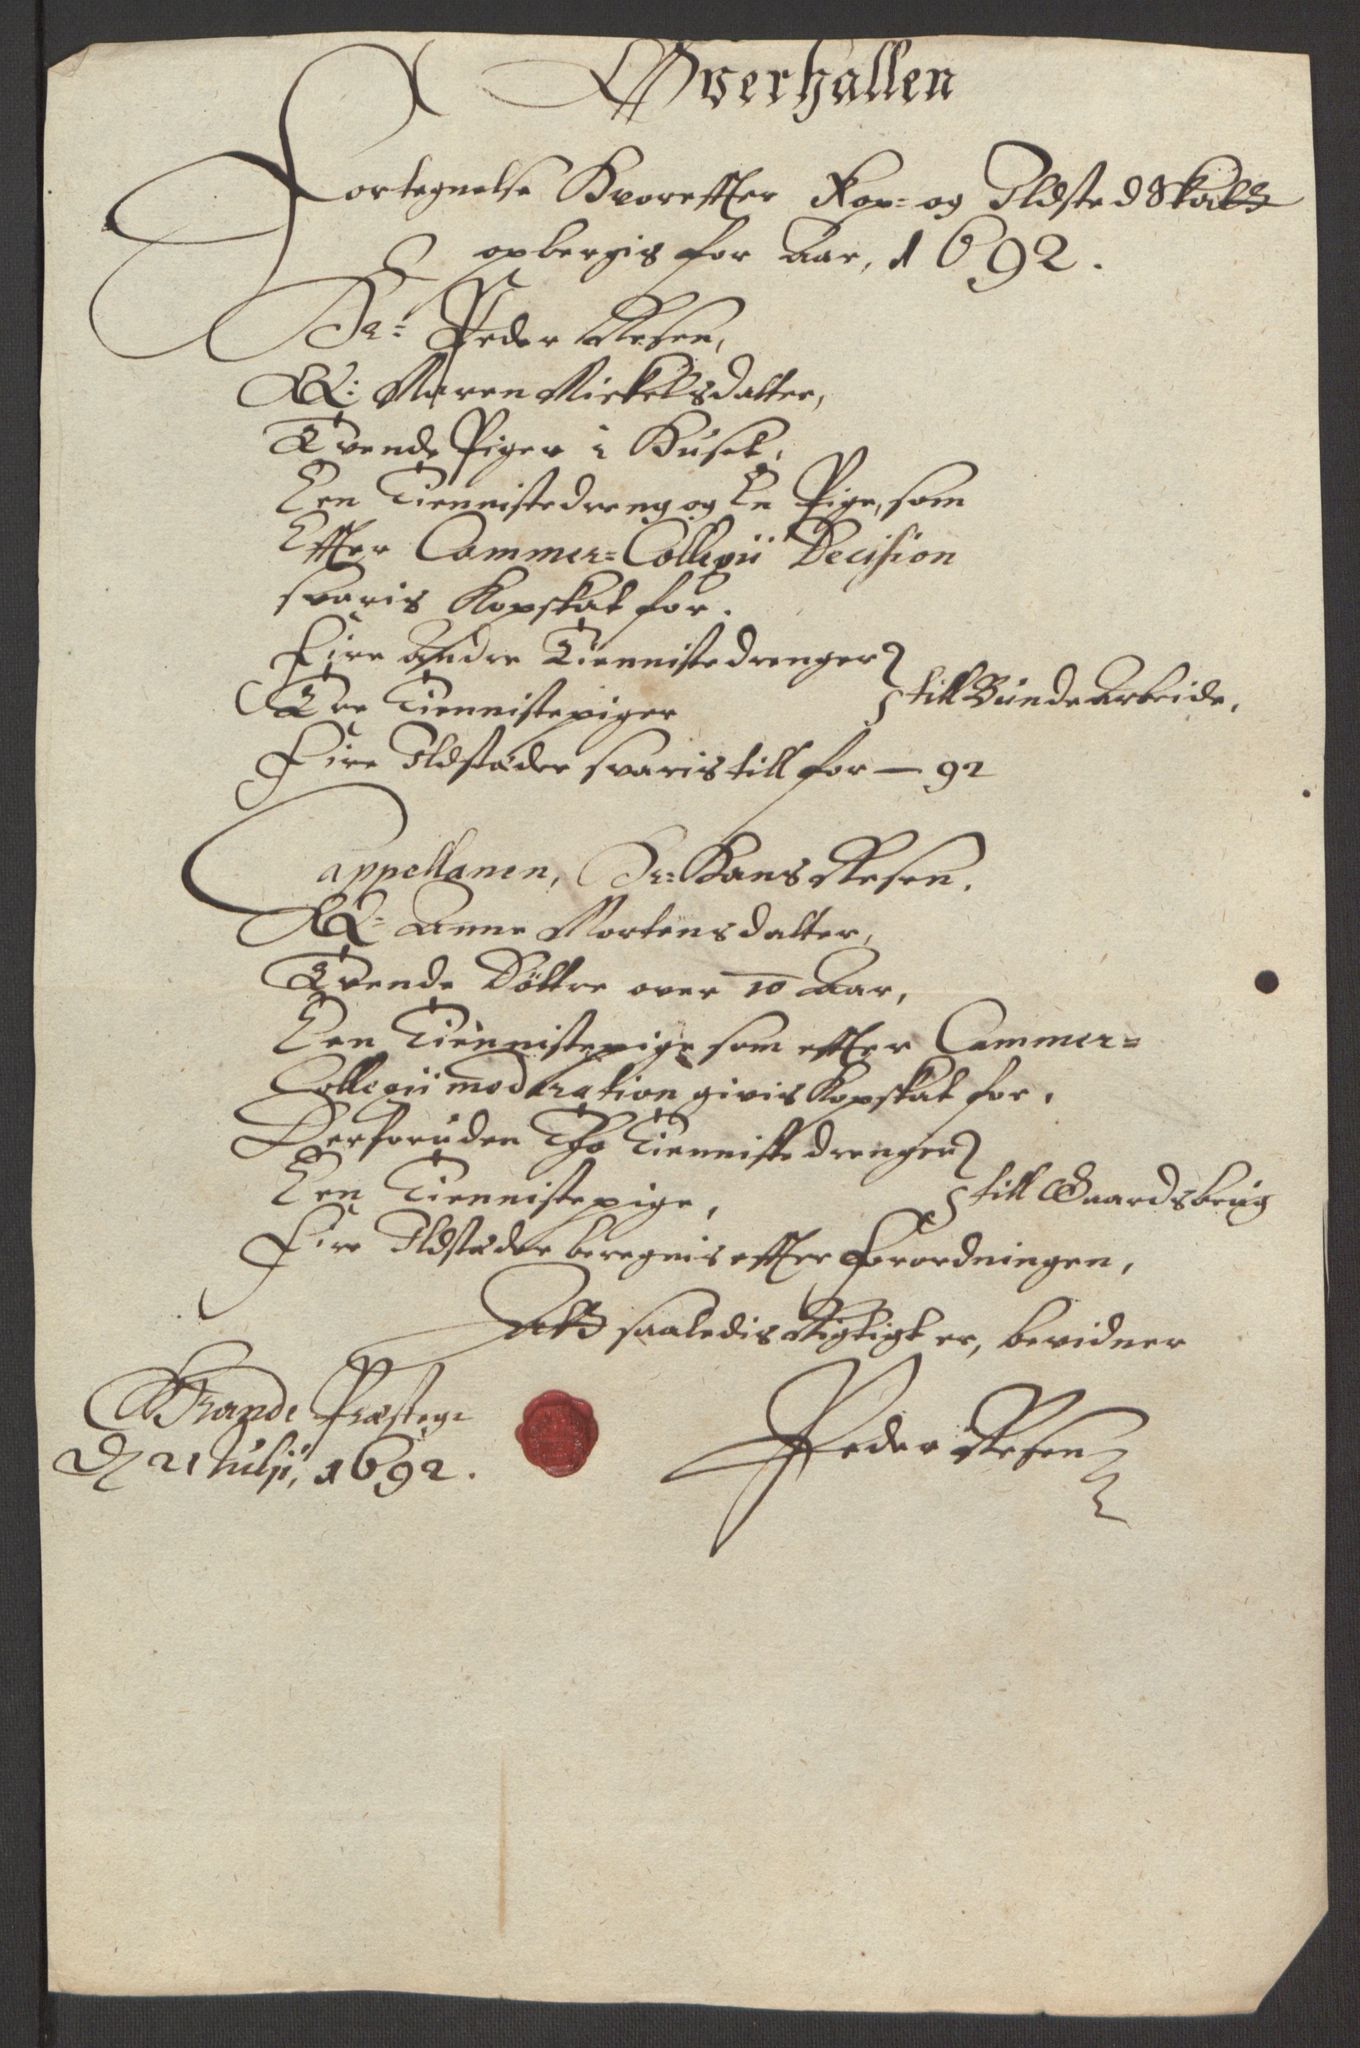 Overhallen
Fortegnelse Hvorefter Kop= og Ildsted Skatt
opbergis for Aar, 1692.
Hr: Peder Resen,
M: Maren Mickelsdatter,
Tvende Piger i Huset,
Een Tiennistedreng og En Pige, som
Effter Cammer=Collegii Decision
svaris Kopskat for.
Fire andre Tiennistedrenger
Tre Tiennistepiger } till Bunde Arbeide,
Fire Ildstæder svaris till for — 92
Cappellanen, Hr: Hans Resen,
M: Anne Mortensdatter,
Tvende Døttre over 10 Aar,
Een Tiennistepige som effter Cammer=
Collegii moderation givis Kopskat for,
Derforuden Tho Tiennistedrenger
Een Tiennistepige, } till Gaardsbrug
Fire Ildstæder beregnis effter Forordningen,
Att saaledis Rigtigt er, bevidner
Rande Præsteg:
Peder Resen
D 21 Julji, 1692.